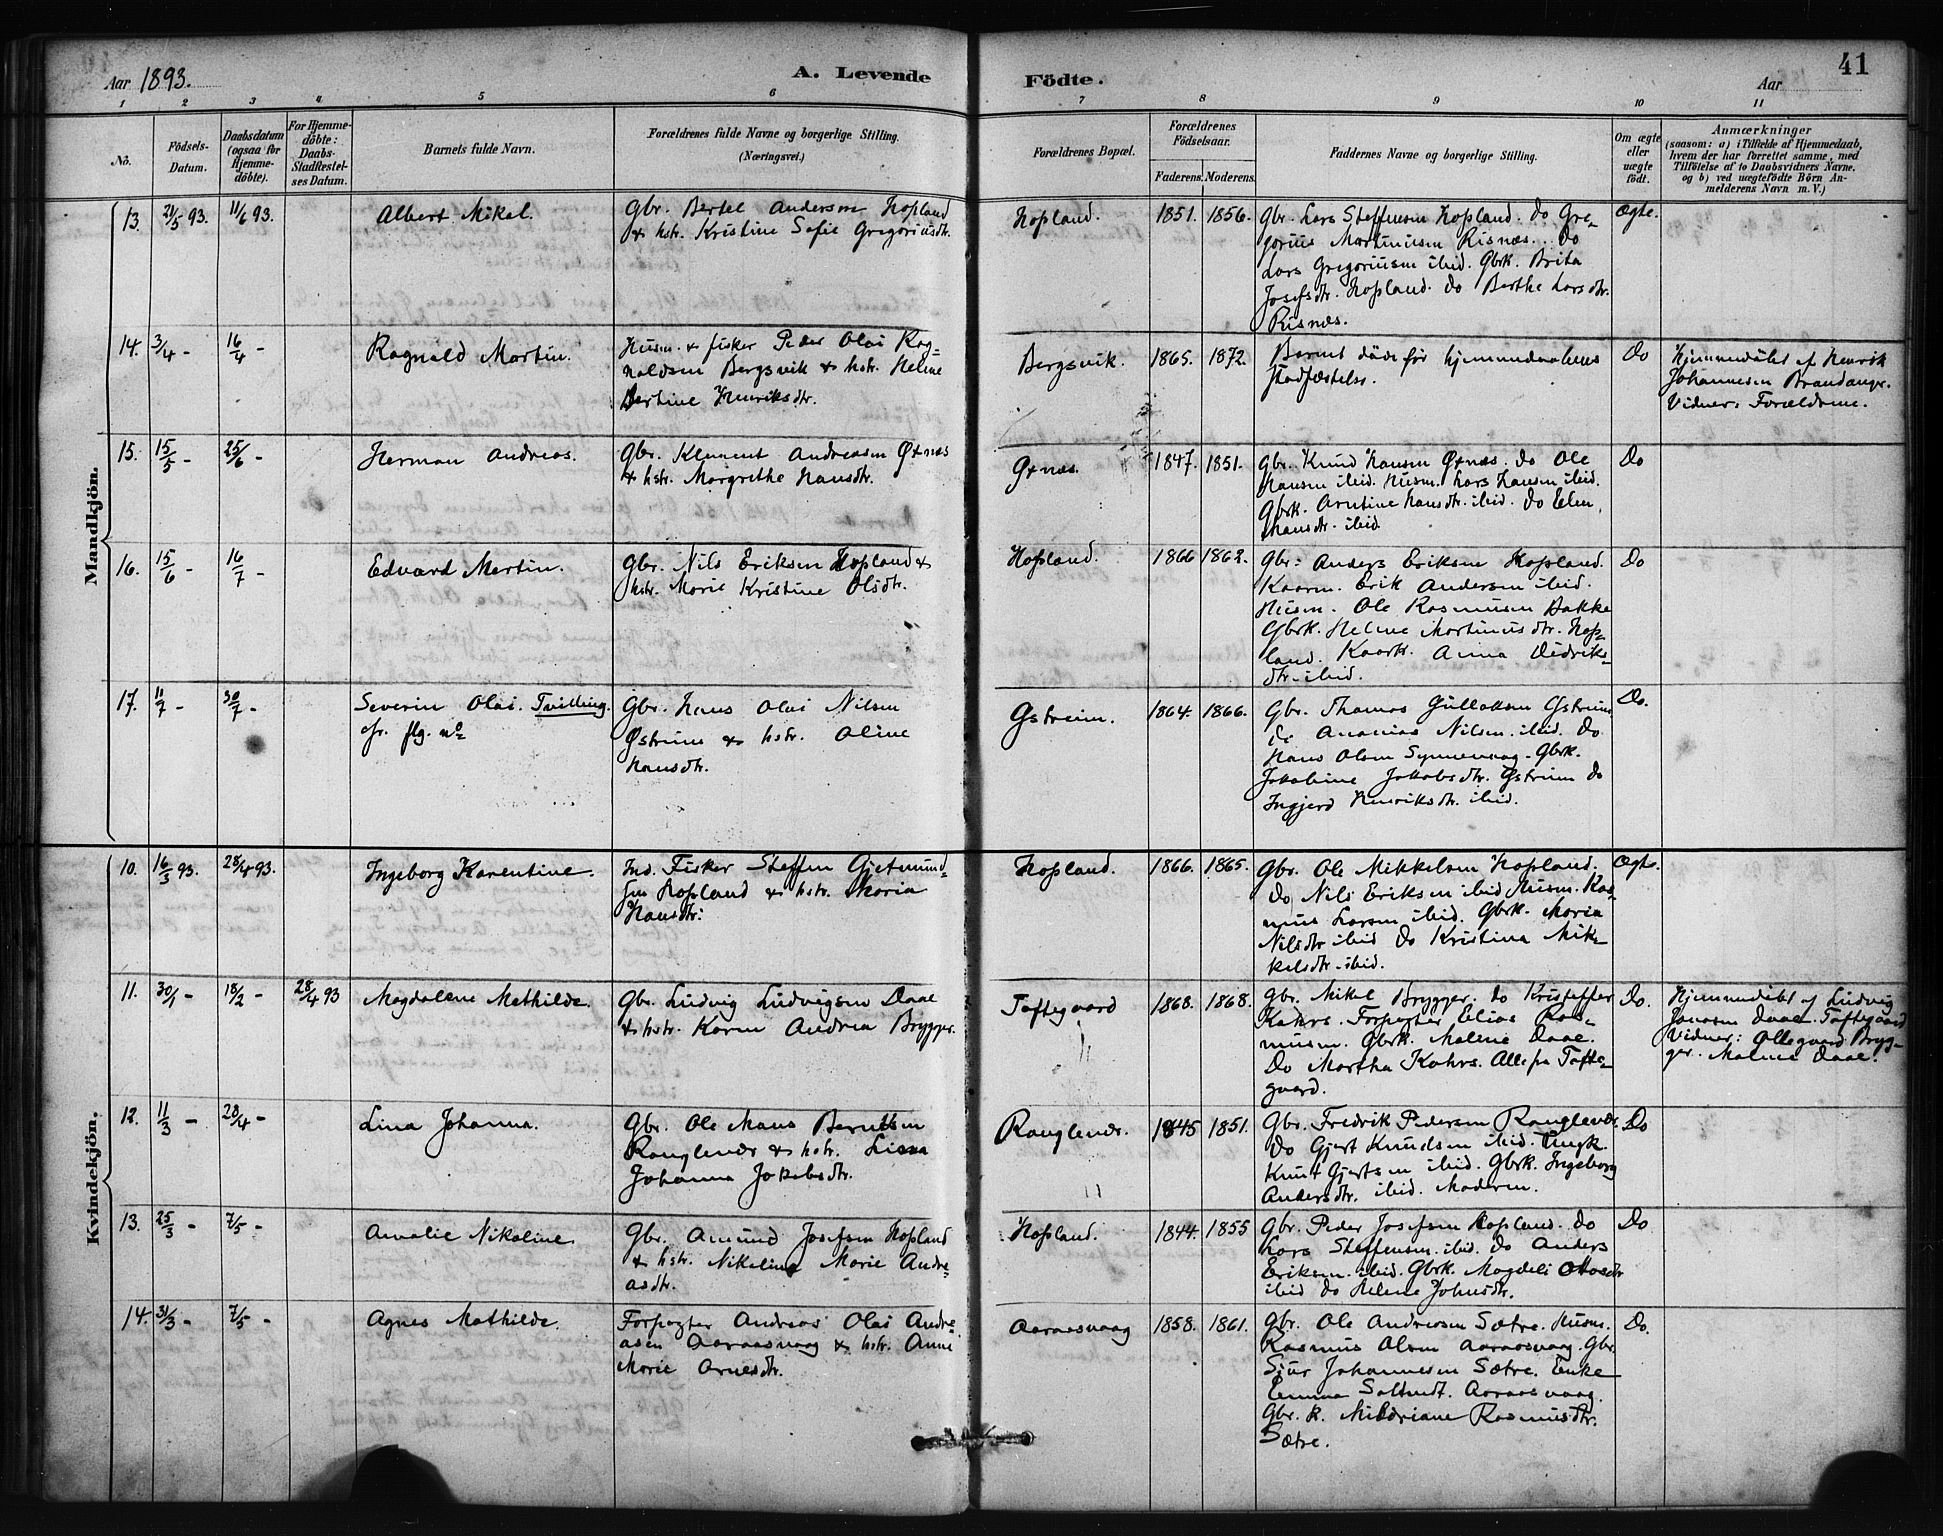 Aar 1893.
A. Levende
Födte.
Aar
41
1
2
3
4
5
6
7
8
9
10
11
No.
Födsels-
Datum.
Daabsdatum
(ogsaa for
Hjemme-
döbte).
For Hjemme-
döbte:
Daabs-
Stadfæstel-
ses Datum.
Barnets fulde Navn.
Forældrenes fulde Navne og borgerlige Stilling.
(Næringsvei.)
Forældrenes Bopæl.
Forældrenes
Födselsaar.
Faderens.
Moderens.
Faddernes Navne og borgerlige Stilling.
Om ægte
eller
uægte
födt.
Anmærkninger
(saasom: a) i Tilfælde af Hjemmedaab,
hvem der har forrettet samme, med
Tilföielse af to Daabsvidners Navne,
og b) ved uægtefödte Börn An-
melderens Navn m. V.)
Mandkjön.
13. 21/5 93. 11/6 93.
Albert Mikal.
Gbr. Bertel Andersen Hopland
& hstr. Kristine Sofie Gregoriusdtr.
Hopland.
1851. 1856.
Gbr. Lars Steffensen Hopland. do Gre-
gorius Martinusen Risnæs. Do
Lars Gregoriusen ibid. Gbrk. Brita
Josefsdtr. Hopland. do Berthe Larsdtr.
Risnæs.
Ægte.
14. 3/4 - 16/4 -
Ragnald Martin.
Husm. & fisker Peder Olai Rag-
naldsen Bergsvik & hstr. Heline
Bertine Henriksdtr.
Bergsvik.
1865. 1872.
Barnet døde før hjemmedaabens
stadfæstelse.
Do
Hjemmedøbt af Henrik
Johannesen Brandanger.
Vidner: Forældrene.
15. 15/5 - 25/6 -
Herman Andreas.
Gbr. Klement Andreasen Øxnæs
& hstr. Margrethe Hansdtr.
Øxnæs.
1847. 1851.
Gbr. Knud Hansen Øxnæs. do Ole
Hansen ibid. Husm. Lars Hansen ibid.
Gbrk. Arntine Hansdtr. ibid. Do Elen
Hansdtr. ibid.
Do
16. 15/6 - 16/7 -
Edvard Martin.
Gbr. Nils Eriksen Hopland &
hstr. Marie Kristine Olsdtr.
Hopland.
1866 1862.
Gbr: Anders Eriksen Hopland.
Kaarm. Erik Andersen ibid.
Husm. Ole Rasmusen Bakke
Gbrk. Helene Martinusdtr. Hop-
land. Kaark. Anna Didriks-
dtr. ibid.
Do
17. 11/7 - 30/7 -
Severin Olai. Tvilling.
cfr. flg. no
Gbr. Hans Olai Nilsen
Østreim & hstr. Oline
Hansdtr.
Østreim.
1864. 1866.
Gbr. Thomas Gullaksen Østreim
do Ananias Nilsen. ibid. Do
Hans Olsen Synnevaag. Gbrk.
Jakobine Jakobsdtr. Østreim Do
Ingjerd Henriksdtr. ibid.
Do.
Kvindekjön.
10. 16/3 93. 28/4 93.
Ingeborg Karentine.
Ind. Fisker Steffen Gjetmund-
sen Hopland & hstr. Maria
Hansdtr.
Hopland.
1866. 1865.
Gbr. Ole Mikkelsen Hopland.
Do Nils Eriksen ibid Husm. Ras-
mus Larsen ibid. Gbrk. Maria
Nilsdtr ibid Do Kristina Mik-
kelsdtr. ibid.
Ægte.
11. 30/1 - 18/2 - 28/4 93
Magdalene Mathilde.
Gbr. Ludvig Ludvigsen Daae
& hstr. Karen Andrea Brygger.
Toftegaard
1868. 1868.
Gbr. Mikal Brygger. do Kristoffer
Kahrs. Forpagter Elias Ras-
musen. Gbrk. Malene Daae.
Do Martha Kahrs. Alle fra Tofte-
gaard.
Do.
Hjemmedøbt af Ludvig
Jonasen Daae. Toftegaard
Vidner: Ollegaard Bryg-
ger. Malene Daae.
12. 11/3 - 23/4 -
Lina Johanna.
Gbr. Ole Mans Berntsen
Ranglender & hstr. Lisna
Johanna Jakobsdtr.
Ranglendr.
1845 1851.
Gbr. Fredrik Pedersen Ranglendr.
Do Gjert Knudsen ibid. Ungk
Knut Gjertsen ibid. Gbrk. Ingeborg
Andersdtr. ibid. Moderen.
Do
13. 25/3 - 7/5 -
Amalie Nikoline
Gbr. Amund Josefsen Hopland
& hstr. Nikoline Marie Andre-
asdtr.
Hopland.
1844. 1855
Gbr. Peder Josefsen Hopland. do
Lars Steffensen. ibid. do Anders
Eriksen. ibid. Gbrk. Magdeli Ottosdtr
ibid do Helene Johnsdtr.
Do
14. 31/3 - 7/5 -
Agnes Mathilde.
Forpagter Andreas Olai Andre
asen Aaraasvaag & hstr. Anne
Marie Arnesdtr.
Aaraasvaag
1858. 1861.
Gbr. Ole Andreasen Sætre. Husm.
Rasmus Olsen Aaraasvaag. Gbr.
Sjur Johannesen Sætre. Enke
Emma Aaraasvaag.
Gbr. k. Rasmusdtr.
Sætre.
Do.